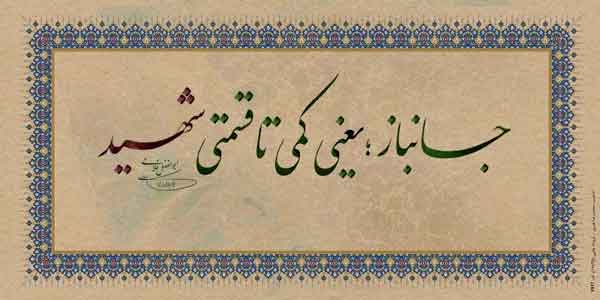 جانباز ؛ یعنی کمی تا قسمتی شهید